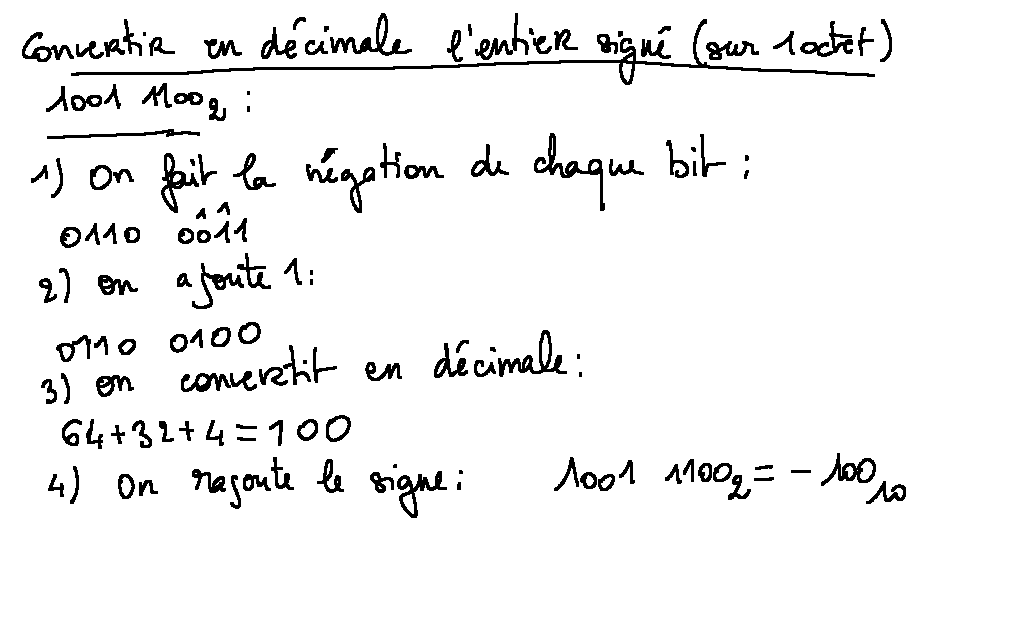 Convertir en décimale l'entier signé (sur 1 octet)
1001 1100₂ :
1) On fait la négation de chaque bit :
1 1
0110 0011
2) on ajoute 1 :
0110 0100
3) on convertit en décimale :
64+32+4=100
4) On rajoute le signe : 1001 1100₂ = -100₁₀